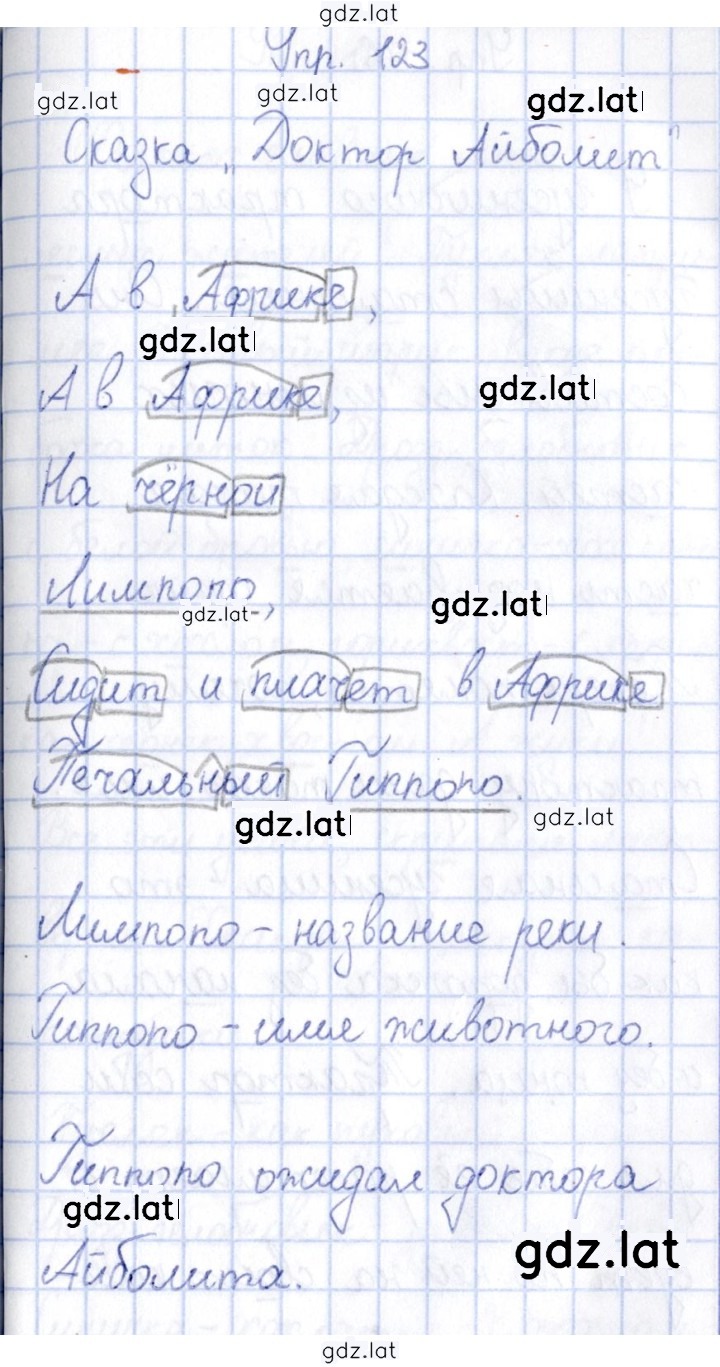 gdz.lat
Упр. 123
gdz.lat gdz.lat gdz.lat
Сказка „Доктор Айболит"
А в Африке,
gdz.lat
А в Африке, gdz.lat
На чёрной
Лимпопо,
gdz.lat gdz.lat
Сидит и плачет в Африке
Печальный Гиппопо.
gdz.lat gdz.lat
Лимпопо – название реки.
Гиппопо – имя животного.
Гиппопо ожидал доктора
gdz.lat
Айболита. gdz.lat
gdz.lat